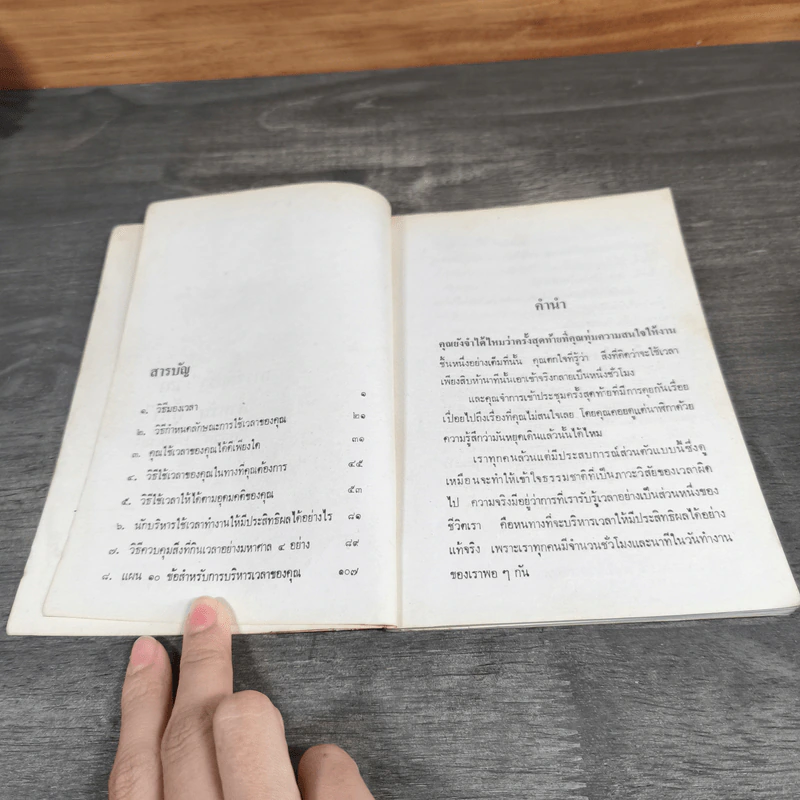 สารบัญ
๑. วิธีมองเวลา ๑
๒. วิธีกำหนดลักษณะการใช้เวลาของคุณ ๒๑
๓. คุณใช้เวลาของคุณได้ดีเพียงใด ๓๑
๔. วิธีใช้เวลาของคุณในทางที่คุณต้องการ ๔๕
๕. วิธีใช้เวลาให้ได้ตามอุดมคติของคุณ ๕๓
๖. นักบริหารใช้เวลาทำงานให้มีประสิทธิผลได้อย่างไร ๘๑
๗. วิธีควบคุมสิ่งที่กินเวลาอย่างมหาศาล ๔ อย่าง ๘๙
๘. แผน ๑๐ ข้อสำหรับการบริหารเวลาของคุณ ๑๐๗
คำนำ
คุณยังจำได้ไหมว่าครั้งสุดท้ายที่คุณทุ่มความสนใจให้งาน
ชิ้นหนึ่งอย่างเต็มที่นั้น คุณตกใจที่รู้ว่า สิ่งที่คิดว่าจะใช้เวลา
เพียงสิบห้านาทีนั้นเอาเข้าจริงกลายเป็นหนึ่งชั่วโมง
และคุณจำการเข้าประชุมครั้งสุดท้ายที่มีการคุยกันเรื่อย
เปื่อยไปถึงเรื่องที่คุณไม่สนใจเลย โดยคุณคอยดูแต่นาฬิกาด้วย
ความรู้สึกว่ามันหยุดเดินแล้วนั้นได้ไหม
เราทุกคนล้วนแต่มีประสบการณ์ส่วนตัวแบบนี้ซึ่งดู
เหมือนจะทำให้เข้าใจธรรมชาติที่เป็นภาวะวิสัยของเวลาผิด
ไป ความจริงมีอยู่ว่าการที่เรารับรู้เวลาอย่างเป็นส่วนหนึ่งของ
ชีวิตเรา คือหนทางที่จะบริหารเวลาให้มีประสิทธิผลได้อย่าง
แท้จริง เพราะเราทุกคนมีจำนวนชั่วโมงและนาทีในวันทำงาน
ของเราพอ ๆ กัน